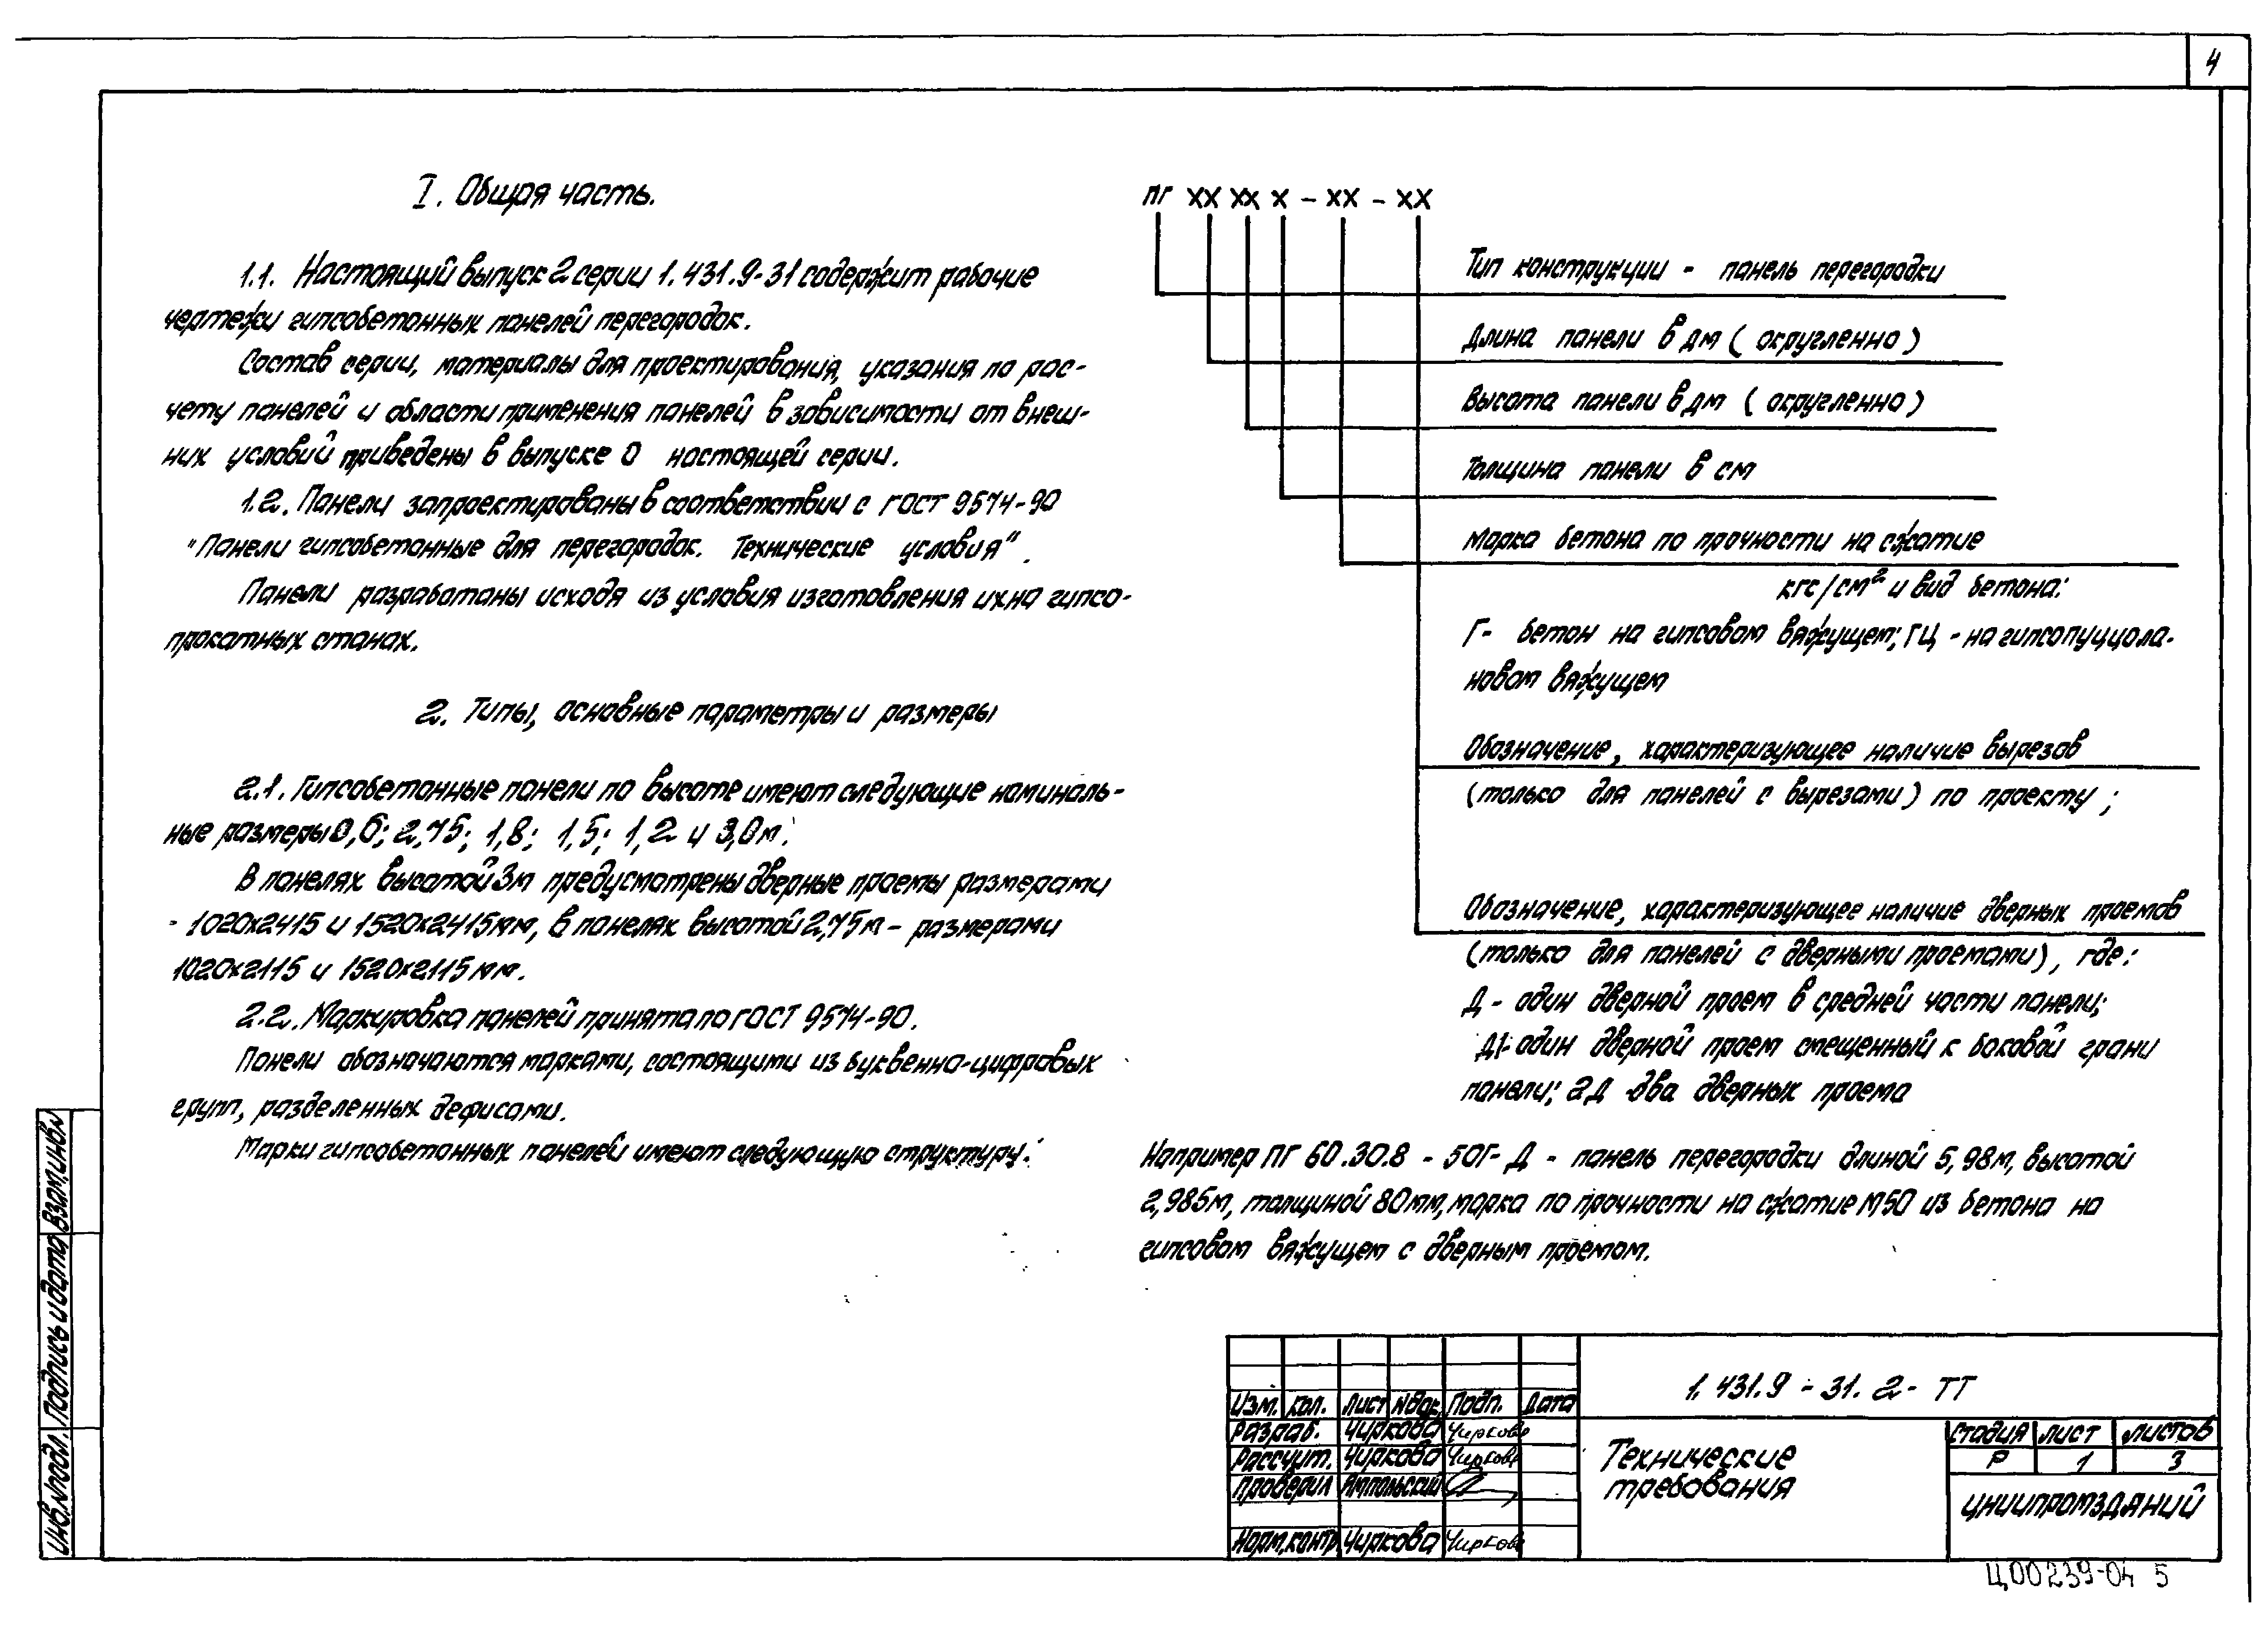 4
I. Общая часть.
1.1. Настоящий выпуск 2 серии 1.431.9-31 содержит рабочие
чертежи гипсобетонных панелей перегородок.
Состав серии, материалы для проектирования, указания по рас-
чету панелей и области применения панелей в зависимости от внеш-
них условий приведены в выпуске 0 настоящей серии.
1.2. Панели запроектированы в соответствии с ГОСТ 9574-90
"Панели гипсобетонные для перегородок. Технические условия".
Панели разработаны исходя из условия изготовления их на гипсо-
прокатных станах.
2. Типы, основные параметры и размеры
2.1. Гипсобетонные панели по высоте имеют следующие номиналь-
ные размеры 0,6; 2,75; 1,8; 1,5; 1,2 и 3,0 м.
В панелях высотой 3м предусмотрены дверные проемы размерами
- 1020х2415 и 1520х2415мм, в панелях высотой 2,75м - размерами
1020х2115 и 1520х2115мм.
2.2. Маркировка панелей принята по ГОСТ 9574-90.
Панели обозначаются марками, состоящими из буквенно-цифровых
групп, разделенных дефисами.
Марки гипсобетонных панелей имеют следующую структуру:
ПГ ХХ ХХ Х - ХХ - ХХ
Тип конструкции - панель перегородки
Длина панели в дм (округленно)
Высота панели в дм (округленно)
Толщина панели в см
Марка бетона по прочности на сжатие
кгс/см² и вид бетона:
Г- бетон на гипсовом вяжущем; ГЦ - на гипсопуццола-
новом вяжущем
Обозначение, характеризующее наличие вырезов
(только для панелей с вырезами) по проекту;
Обозначение, характеризующее наличие дверных проемов
(только для панелей с дверными проемами), где:
Д - один дверной проем в средней части панели;
Д1- один дверной проем смещенный к боковой грани
панели; 2Д -два дверных проема
Например ПГ 60.30.8 - 50Г- Д - панель перегородки длиной 5,98м, высотой
2,985м, толщиной 80мм, марка по прочности на сжатие М50 из бетона на
гипсовом вяжущем с дверным проемом.
Взам.инв№
Подпись и дата
Инв.№подл.
Изм. Кол. Лист №док. Подп. Дата
Разраб. Чиркова Чиркова
Рассчит. Чиркова Чиркова
Проверил Ямпольский
Норм.контр. Чиркова Чиркова
1.431.9 - 31.2- ТТ
Технические
требования
Стадия Лист Листов
Р 1 3
ЦНИИПРОМЗДАНИЙ
Ц00239-04 5